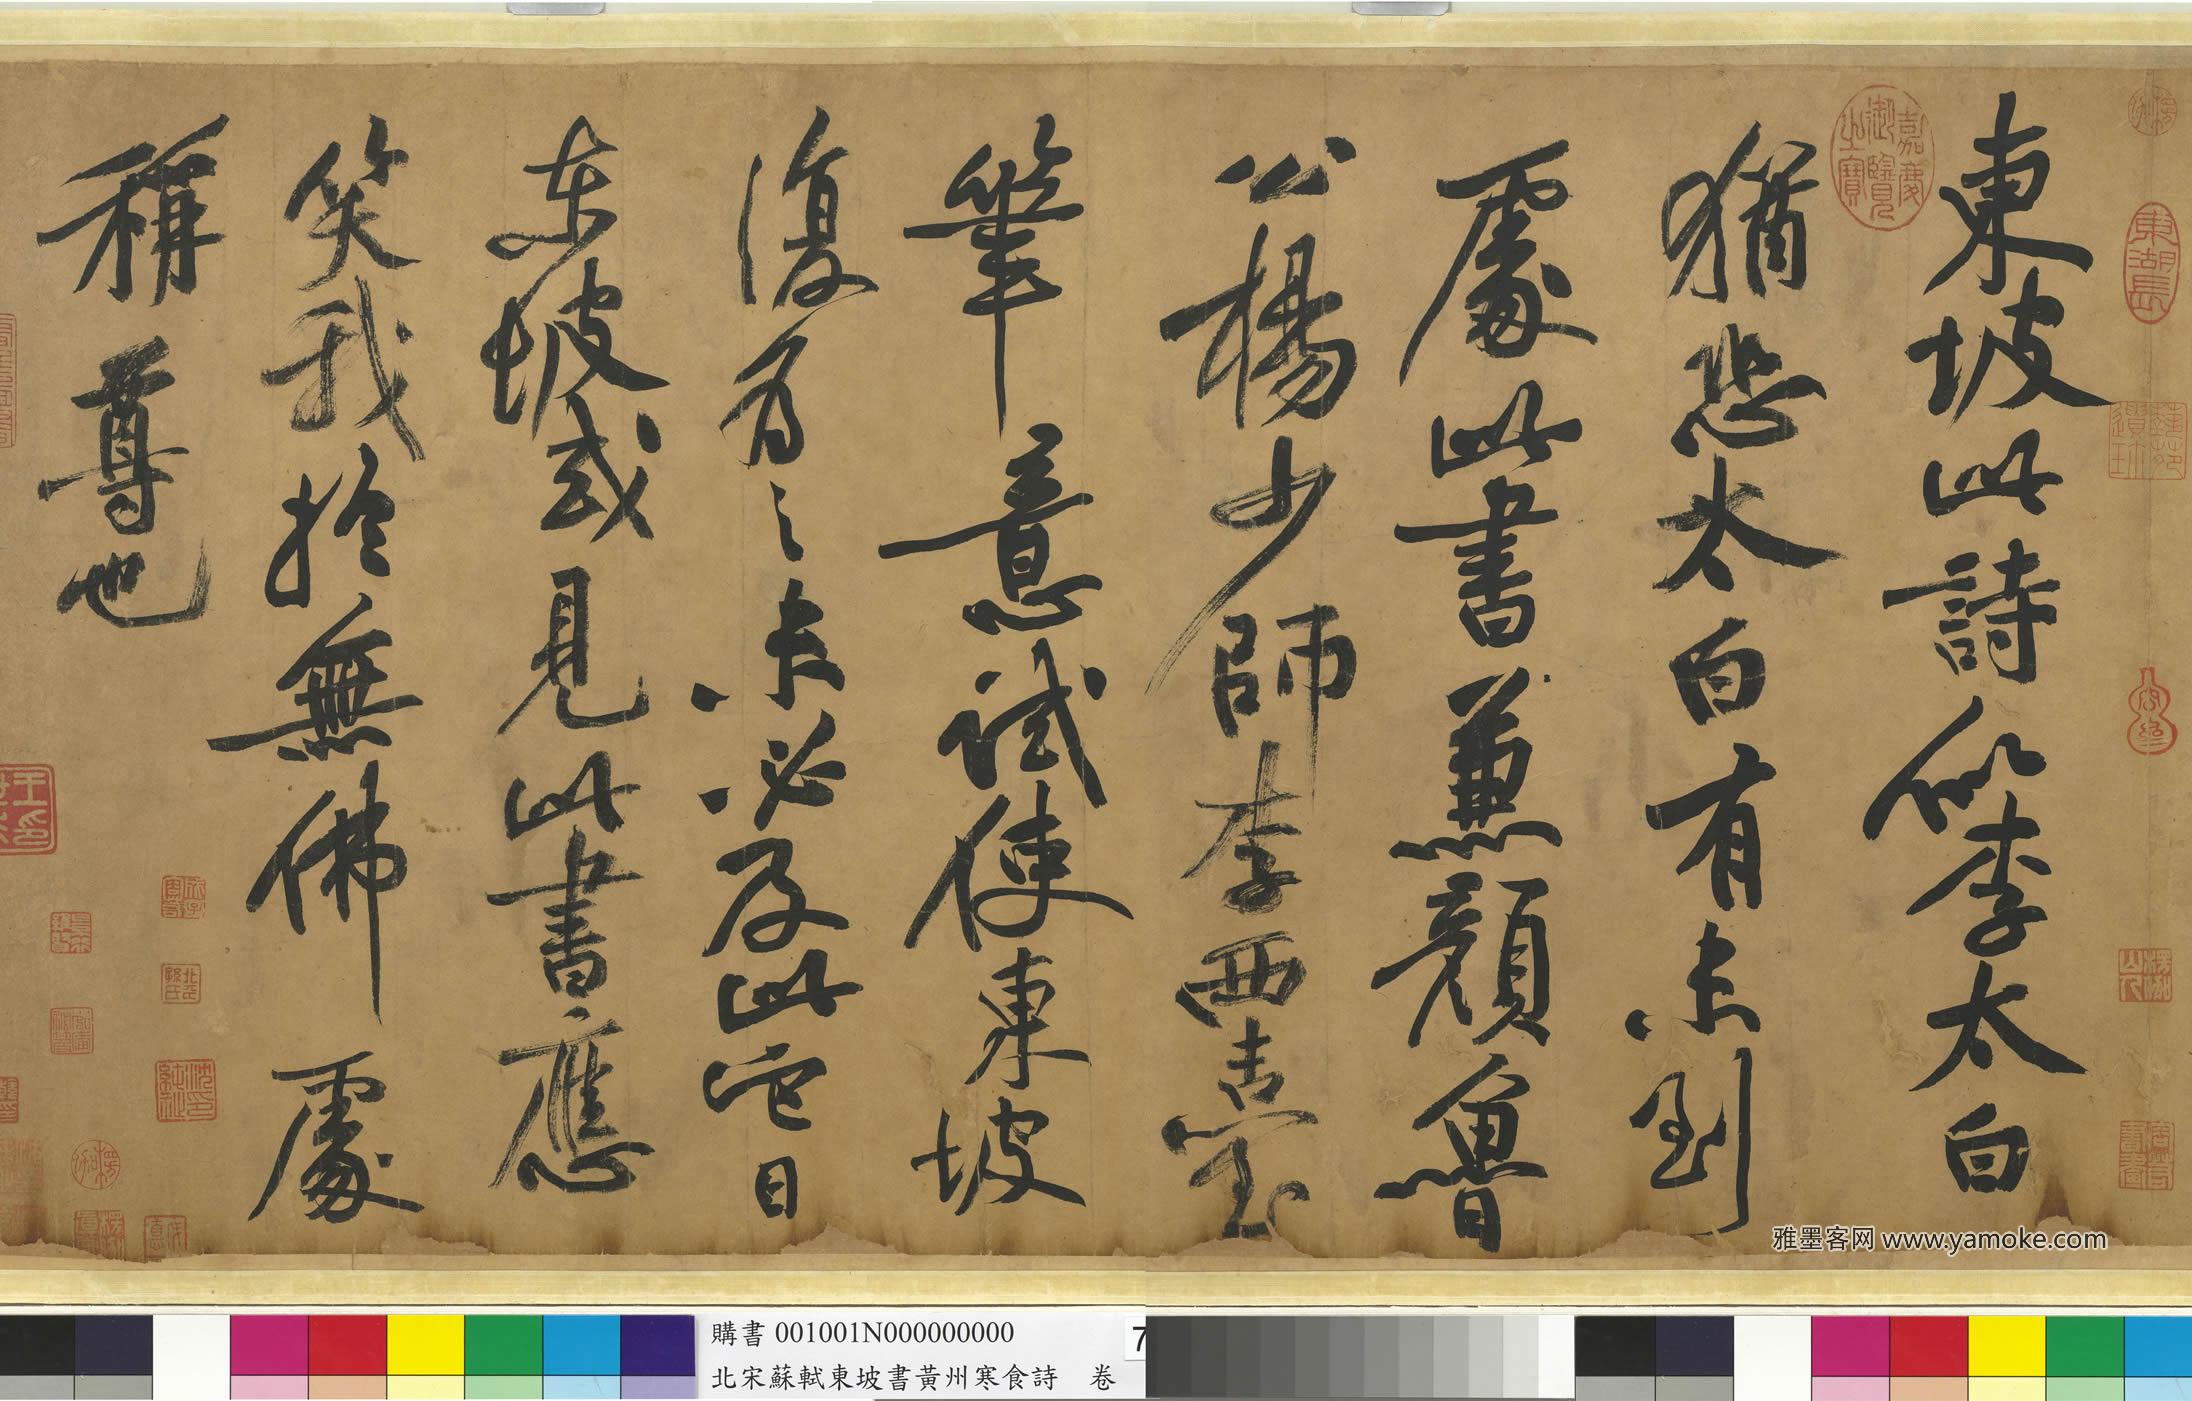 東坡此詩似李太白
猶恐太白有未到
處此書兼顏魯
公楊少師李西臺
筆意試使東坡
復為之未必及此它日
東坡或見此書應
笑我於無佛處
稱尊也
嘉慶
御覽
之寶
東湖長
雅墨客网 www.yamoke.com
購書 001001N000000000
北宋蘇軾東坡書黃州寒食詩 卷
7